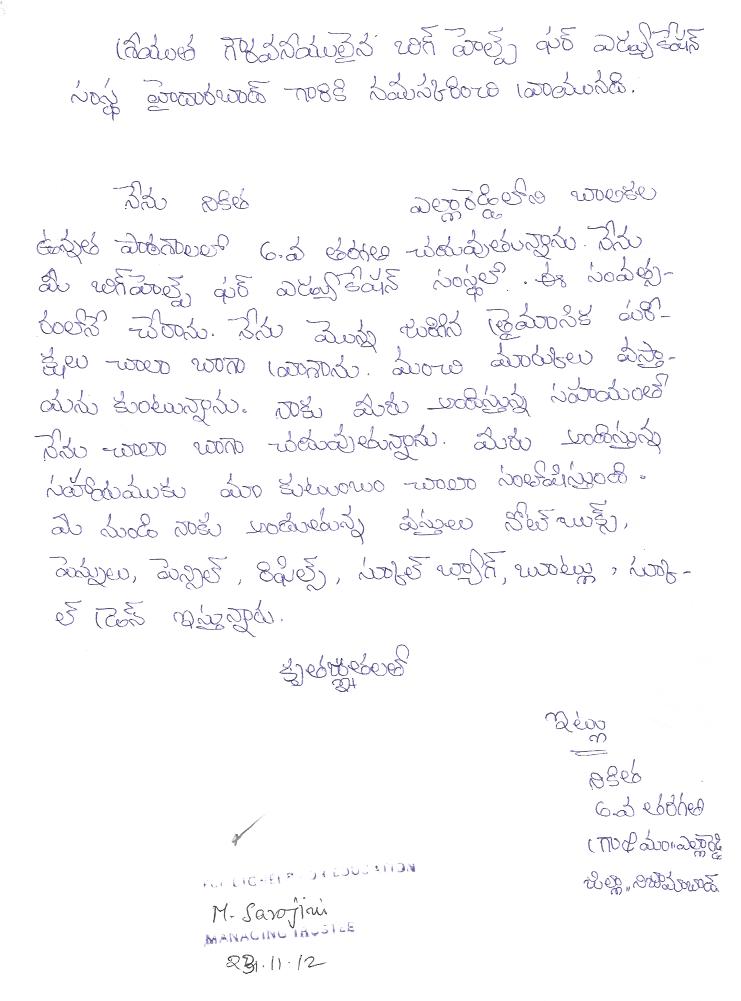 శ్రీయుత గౌరవనీయులైన బిగ్ హెల్ప్ ఫర్ ఎడ్యుకేషన్
సంస్థ హైదారబాద్ గారికి నమస్కరించి వ్రాయునది.
నేను నికిత ఎల్లారెడ్డిలోని బాలికల
ఉన్నత పాఠశాలలో 6.వ తరగతి చదువుతున్నాను. నేను
మీ బిగ్‌హెల్ప్ ఫర్ ఎడ్యుకేషన్ సంస్థలో. ఈ సంవత్స-
రంలోనే చేరాను. నేను మొన్న జరిగిన త్రైమాసిక పరీ-
క్షలు చాలా బాగా వ్రాశాను. మంచి మార్కులు వస్తా-
యను కుంటున్నాను. నాకు మీరు అందిస్తున్న సహాయంతో
నేను చాలా బాగా చదువుతున్నాను. మీరు అందిస్తున్న
సహాయముకు మా కుటుంబం చాలా సంతోషిస్తుంది.
మీ నుండి నాకు అందుతున్న వస్తులు నోట్ బుక్స్,
పెన్నులు, పెన్సిల్, రిఫిల్స్, స్కూల్ బ్యాగ్, బూట్లు, స్కూ-
ల్ డ్రెస్ ఇస్తున్నారు.
కృతజ్ఞతలతో
ఇట్లు
నికిత
6.వ తరగతి
గ్రా||మం||ఎల్లారెడ్డి
జిల్లా,,నిజామాబాద్
M. Sarojini
MANAGING TRUSTEE